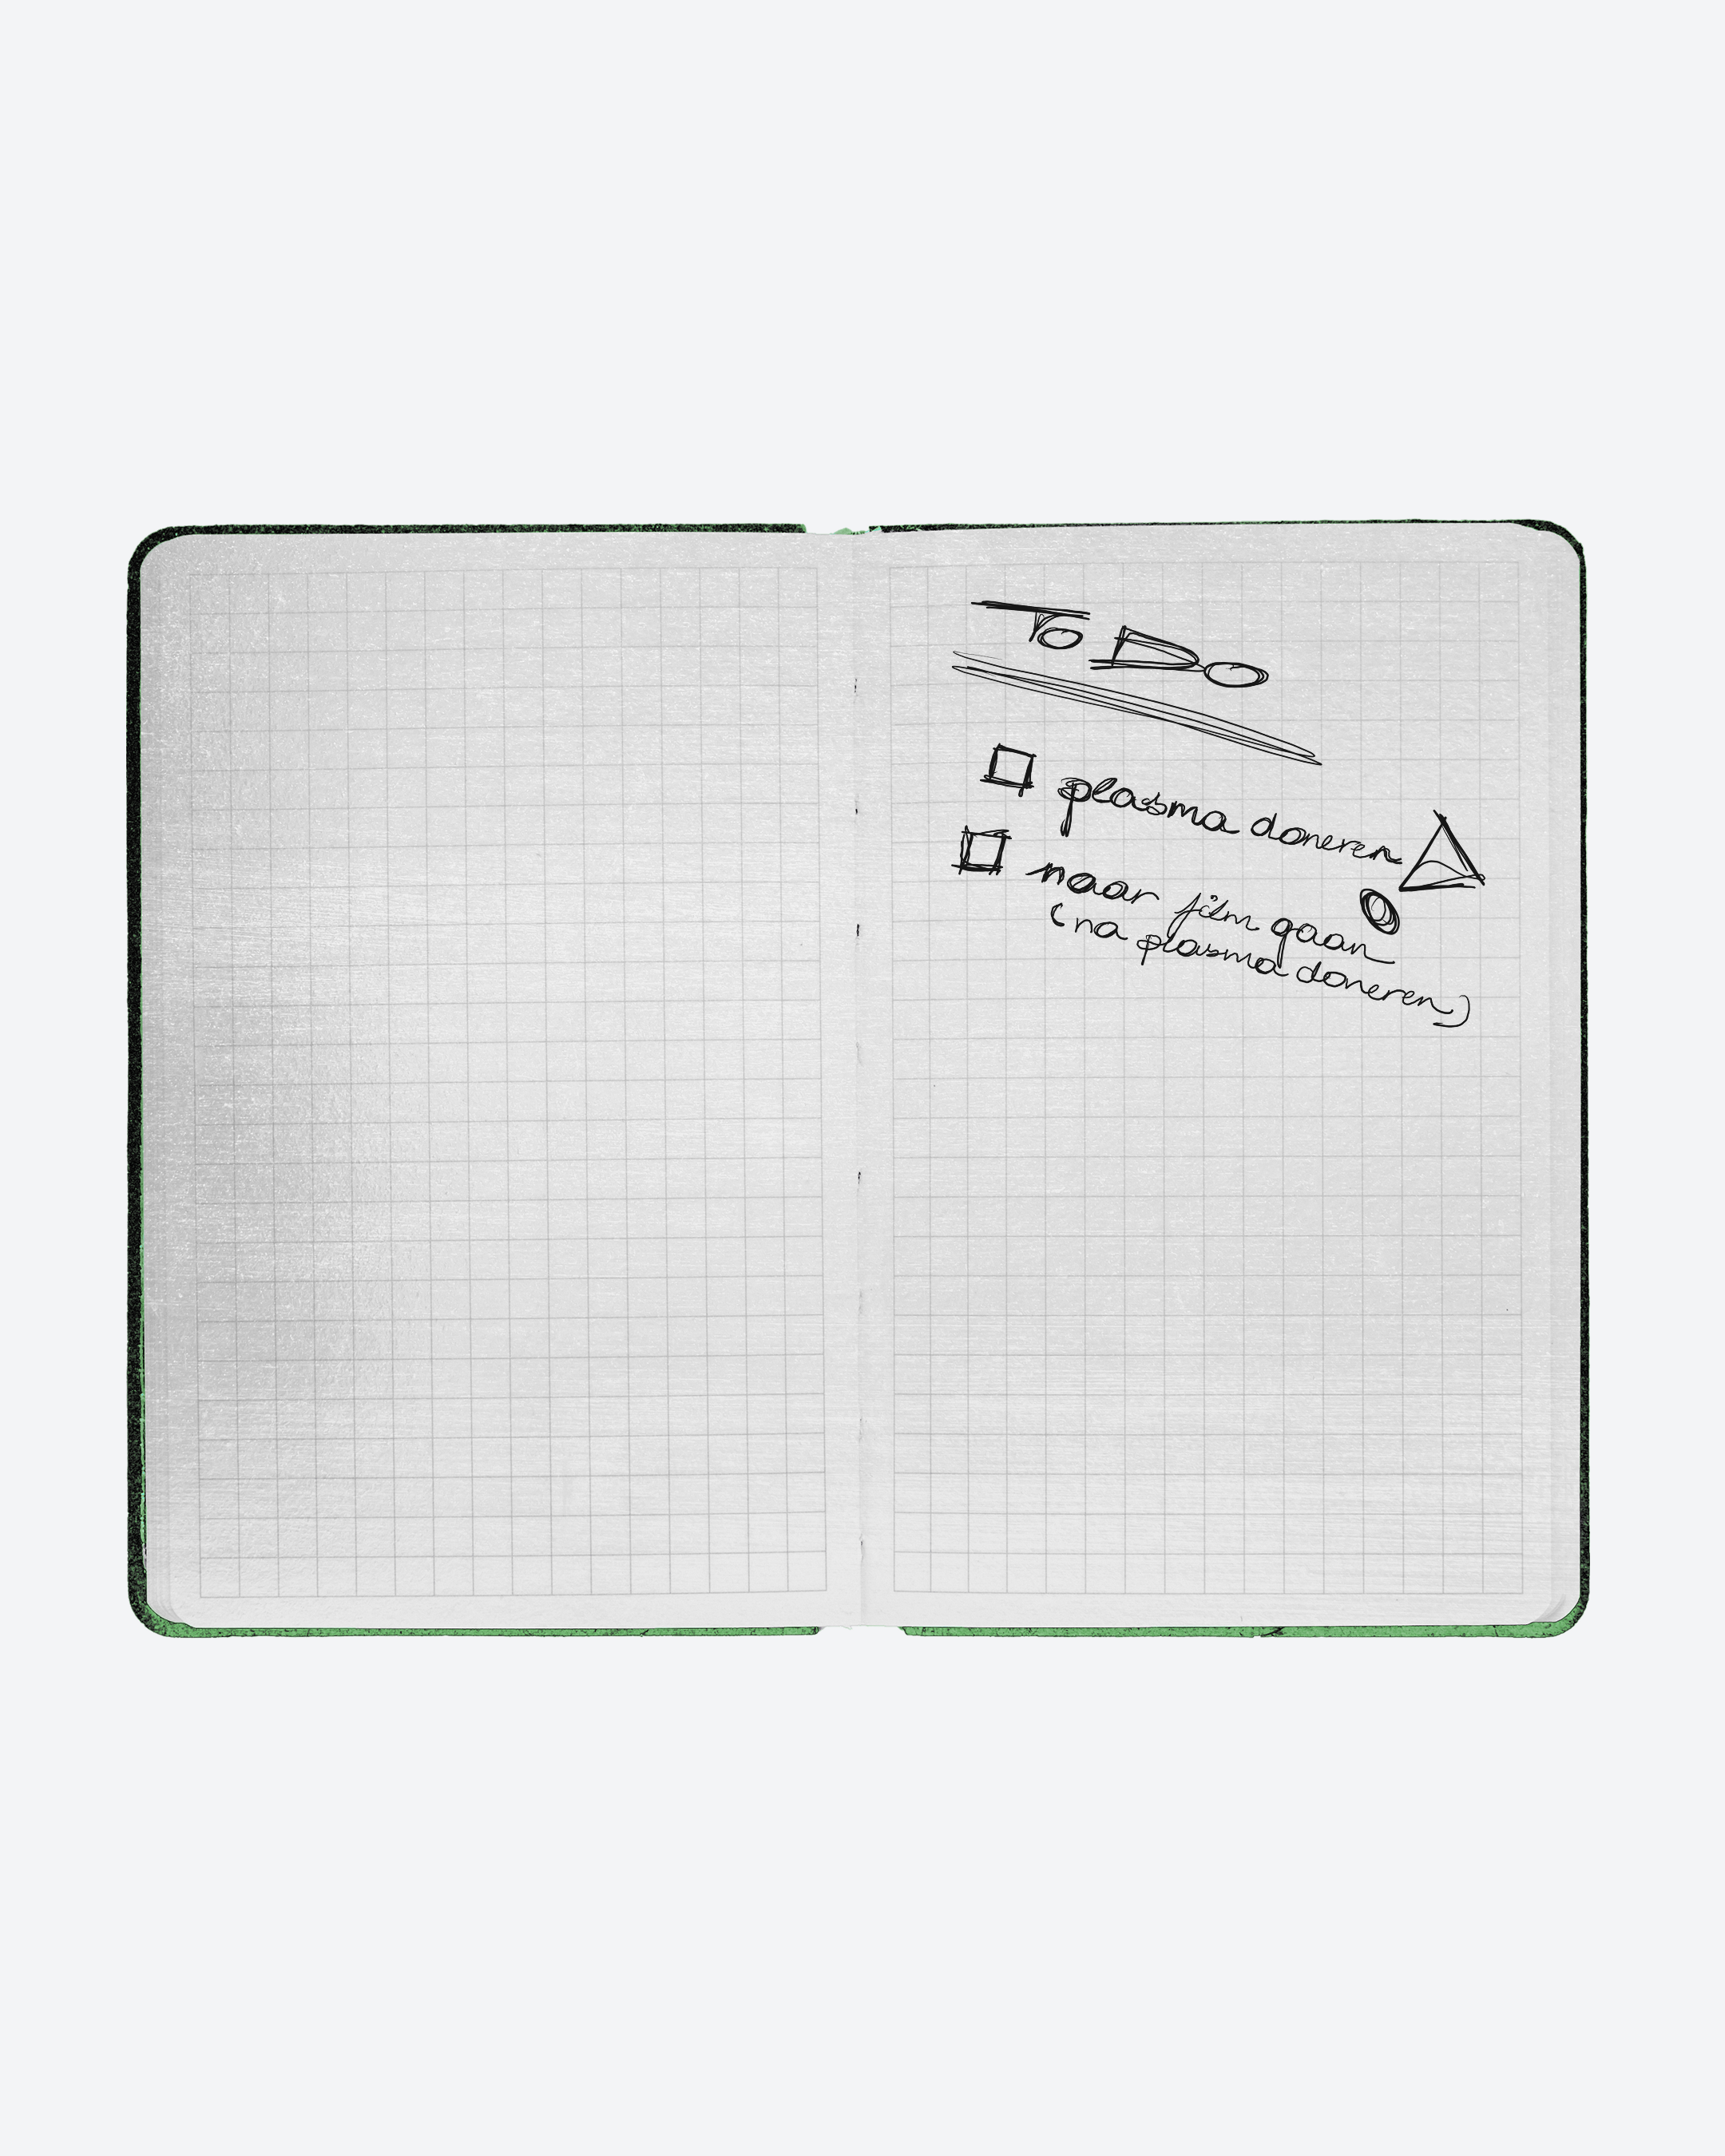 To Do
plasma doneren!
naar film gaan
(na plasma doneren)